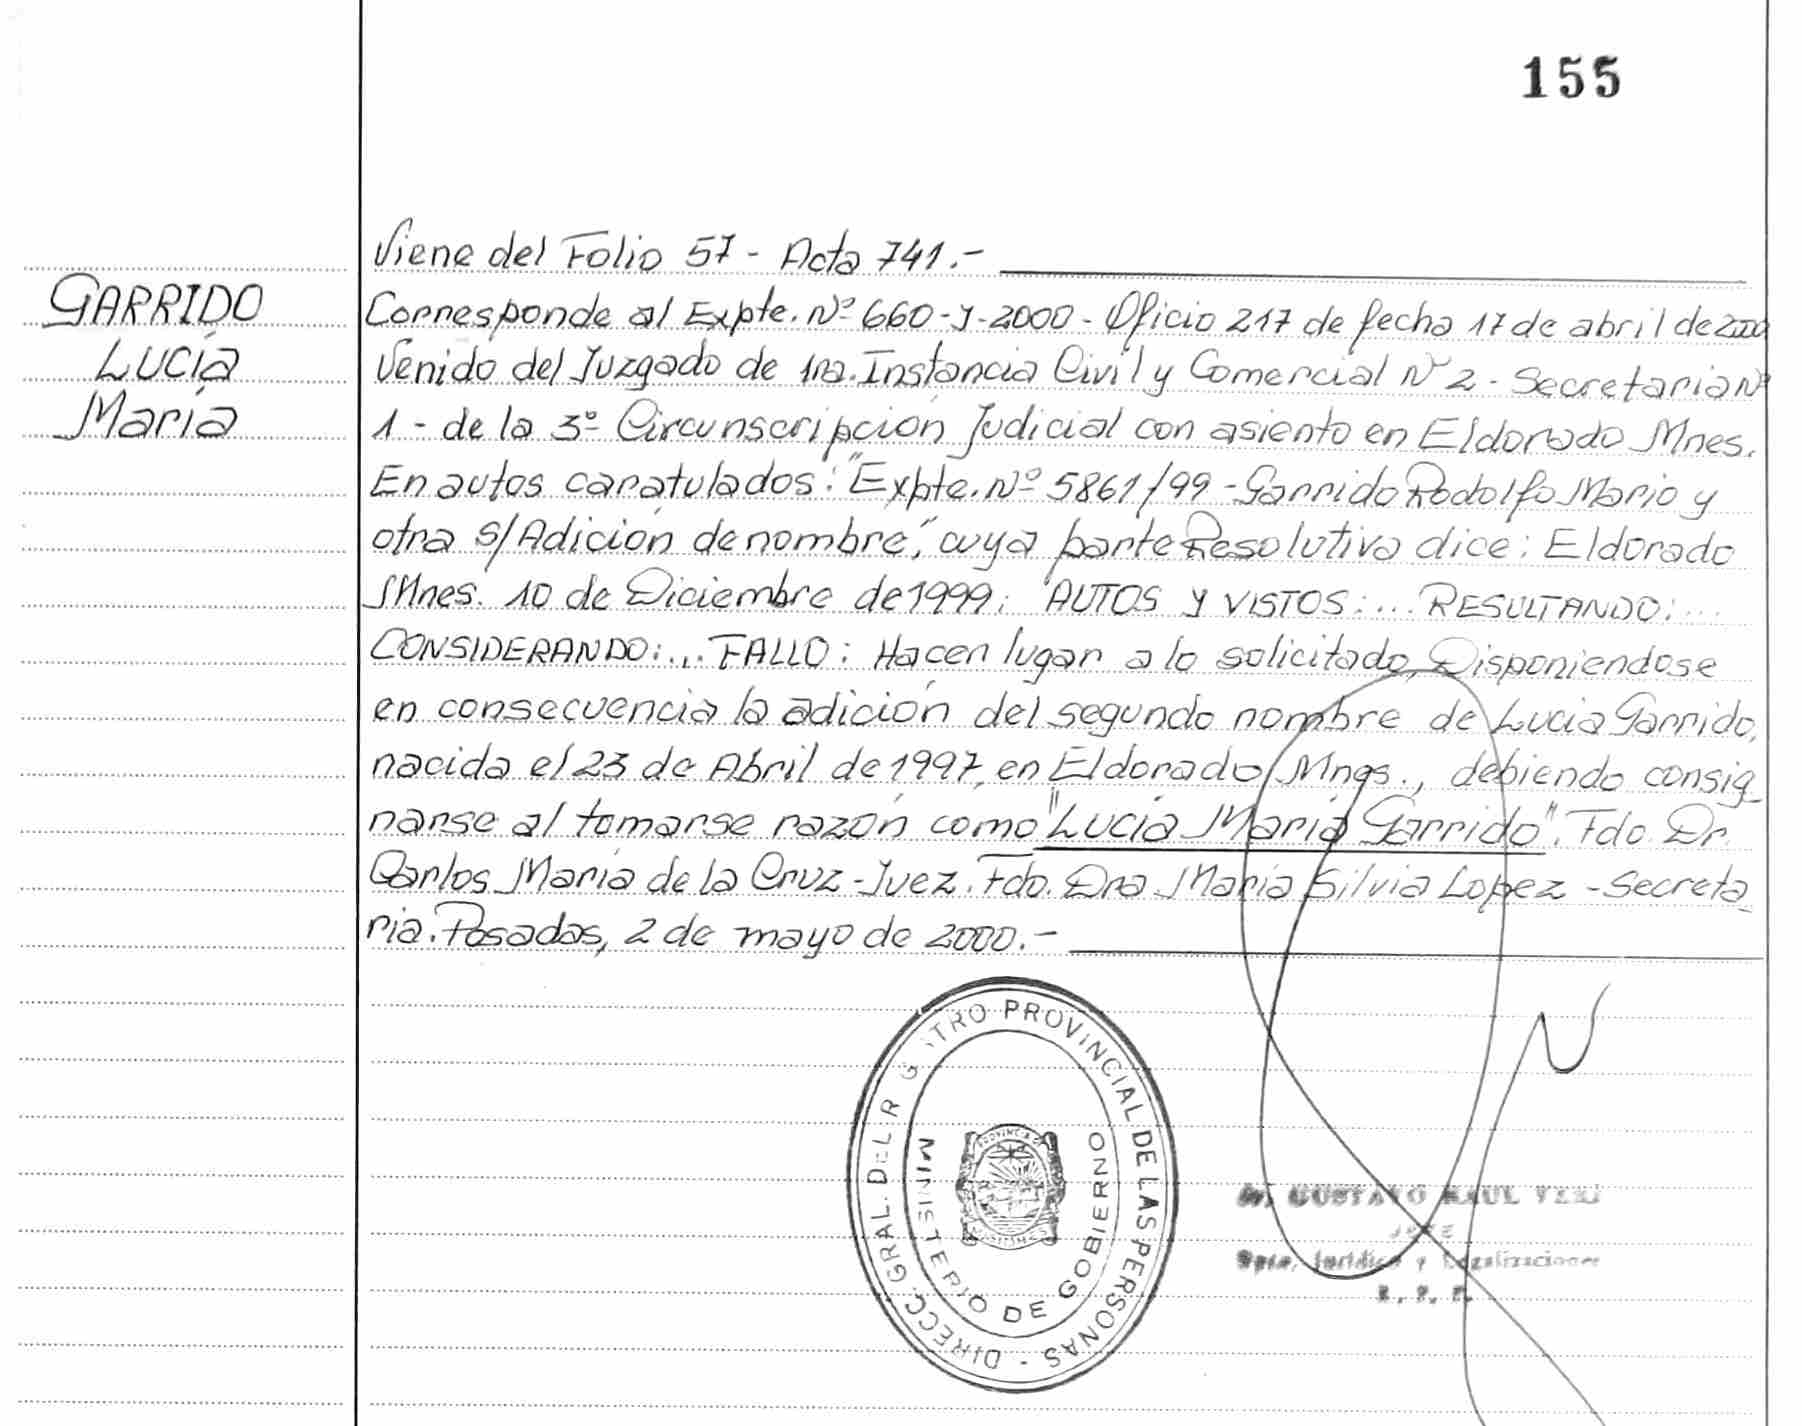 155
GARRIDO
Lucía
María
Viene del Folio 57 - Acta 741.-
Corresponde al Expte. Nº 660-J-2000 - Oficio 217 de fecha 17 de abril de 2000
Venido del Juzgado de 1ra. Instancia Civil y Comercial Nº 2 - Secretaria Nº
1 - de la 3º Circunscripción Judicial con asiento en Eldorado Mnes.
En autos caratulados: "Expte. Nº 5861/99 - Garrido Rodolfo Mario y
otra s/ Adición de nombre", cuya parte Resolutiva dice: Eldorado
Mnes. 10 de Diciembre de 1999: AUTOS Y VISTOS:... RESULTANDO:...
CONSIDERANDO:... FALLO: Hacen lugar a lo solicitado, Disponiendose
en consecuencia la adición del segundo nombre de Lucia Garrido,
nacida el 23 de Abril de 1997, en Eldorado, Mnes., debiendo consig_
narse al tomarse razón como "Lucía María Garrido". Fdo. Dr.
Carlos María de la Cruz - Juez. Fdo. Dra María Silvia Lopez - Secreta_
ria. Posadas, 2 de mayo de 2000.-
DIRECC. GRAL. DEL R G TRO PROVINCIAL DE LAS PERSONAS -
MINISTERIO DE GOBIERNO
Dr. GUSTAVO RAUL
JEFE
Dpto. Jurídico y Legalizaciones
R. P. P.